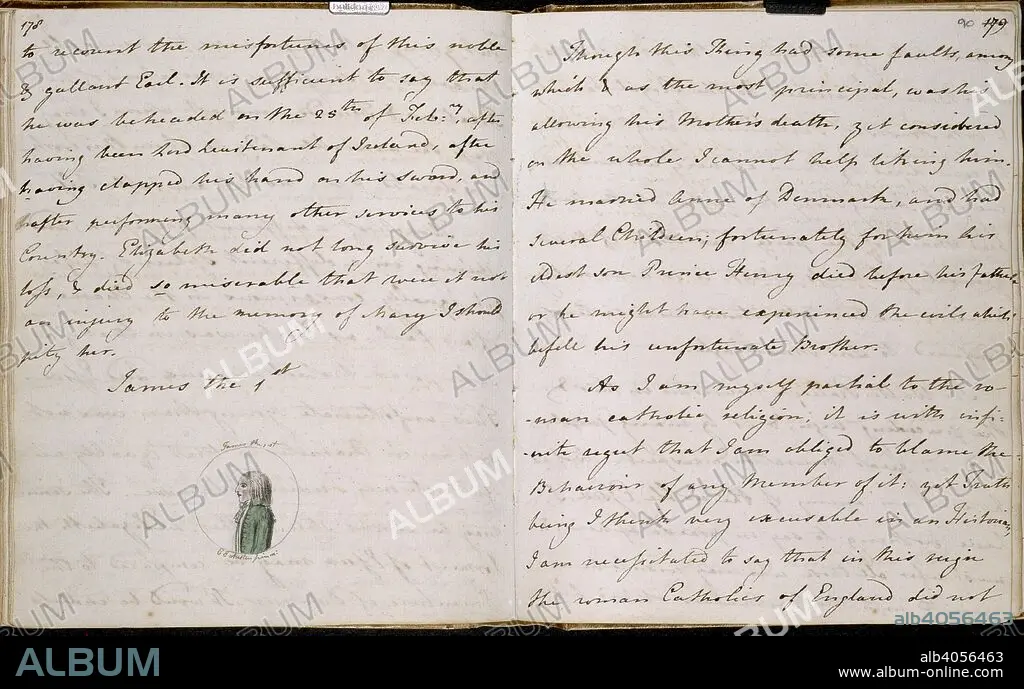 178
to recount the misfortunes of this noble
& gallant Earl. It is sufficient to say that
he was beheaded on the 25th of Feb:ry, after
having been Lord Leuitenant of Ireland, after
having clapped his hand on his sword, and
after performing many other services to his
Country. Elizabeth did not long survive his
loss, & died so miserable that were it not
an injury to the memory of Mary I should
pity her.
James the 1st
James the 1st
C E Austen pinx:
90 179
Though this King had some faults, among
which & as the most principal, was his
allowing his Mother's death, yet considered
on the whole I cannot help liking him.
He married Anne of Denmark, and had
several Children; fortunately for him his
eldest son Prince Henry died before his father
or he might have experienced the evils which
befell his unfortunate Brother.
As I am myself partial to the ro-
-man catholic religion, it is with infi-
-nite regret that I am obliged to blame the
Behaviour of any Member of it: yet Truth
being I think very excusable in an Historian,
I am necessitated to say that in this reign
the roman Catholics of England did not
ALBUM
alb4056463
ALBUM
alb4056463
www.album-online.com